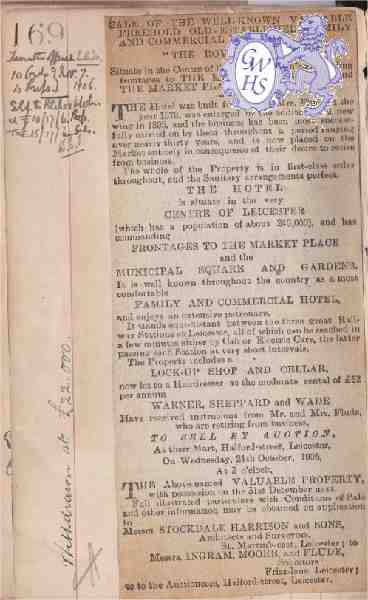 169
SALE OF THE WELL-KNOWN VALUABLE
FREEHOLD OLD-ESTABLISHED FAMILY
AND COMMERCIAL
"THE
Situate in the Centre of
frontages to THE M
THE MARKET PLA
GWHS
THE Hotel was built
year 1870, was enlarged by the
wing in 1898, and the business has been most success-
fully carried on by them throughout a period ranging
over nearly thirty years, and is now placed on the
Market entirely in consequence of their desire to retire
from business.
The whole of the Property is in first-class order
throughout, and the Sanitary arrangements perfect.
THE HOTEL
is situate in the very
CENTRE OF LEICESTER
(which has a population of about 240,000), and has
commanding
FRONTAGES TO THE MARKET PLACE
and the
MUNICIPAL SQUARE AND GARDENS.
It is well known throughout the country as a most
comfortable
FAMILY AND COMMERCIAL HOTEL,
and enjoys an extensive patronage.
It stands equi-distant between the three great Rail-
way Stations of Leicester, all of which can be reached in
a few minutes either by Cab or Electric Cars, the latter
passing each Station at very short intervals.
The Property includes a
LOCK-UP SHOP AND CELLAR,
now let to a Hairdresser at the moderate rental of £52
per annum
WARNER, SHEPPARD and WADE
Have received instructions from Mr. and Mrs. Flude,
who are retiring from business,
TO SELL BY AUCTION,
At their Mart, Halford-street, Leicester,
On Wednesday, 24th October, 1906,
At 3 o'clock,
THE Above-named VALUABLE PROPERTY,
with possession on the 31st December next.
Full illustrated particulars with Conditions of Sale
and other information may be obtained on application
to
Messrs STOCKDALE HARRISON and SONS,
Architects and Surveyors,
St. Martin's-east, Leicester; to
Messrs. INGRAM, MOORE, and FLUDE,
Solicitors
Friar-lane Leicester;
or to the Auctioneers, Halford-street, Leicester.
Withdrawn at £22,000.